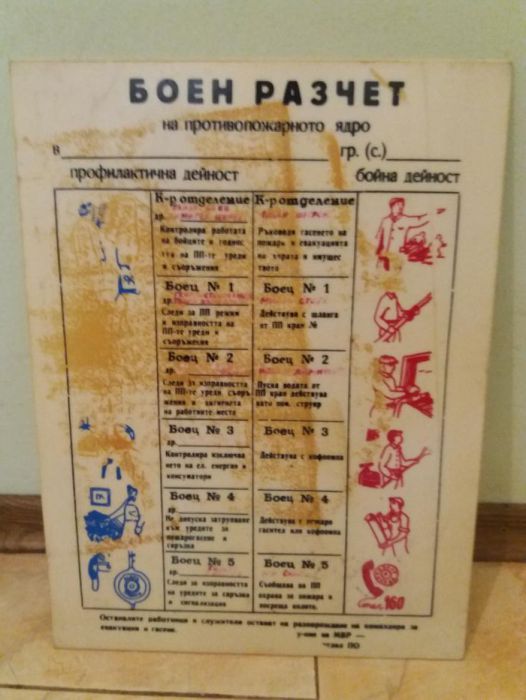 БОЕН РАЗЧЕТ
на противопожарното ядро
в гр. (с.)
профилактична дейност бойна дейност
К-р отделение
др.
Контролира работата
на бойците и годност
та на ПП-те уреди
и съоръжения
К-р отделение
Ръководи гасенето на
пожари и евакуацията
на хората и имущес
твото
Боец № 1
др.
Следи за ПП режим
и изправността на
ПП-те уреди и
съоръжения
Боец № 1
Действува с шланга
от ПП кран №
Боец № 2
др.
Следи за изправността
на ПП-те уреди съоръ
жения и хигиената
на работните места
Боец № 2
Пуска водата от
ПП кран действува
като пом. струяр
Боец № 3
др.
Контролира изключва
нето на ел. енергия и
консуматори
Боец № 3
Действува с кофпомпа
Боец № 4
др.
Не допуска затрупване
към уредите за
пожарогасене и
свръзка
Боец № 4
Действува с пожаро
гасител или кофпомпа
Боец № 5
др.
Следи за изправността
на уредите за свръзка
и сигнализация
Боец № 5
Съобщава на ПП
охрана за пожара и
посреща колите.
160
Останалите работници и служители остават на разпореждане на командира за
евакуация и гасене.
у-ние на МВР —
отдел ПО